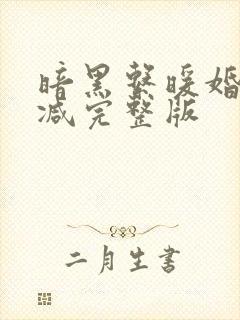 暗黑系暖婚
减完整版
二月生書